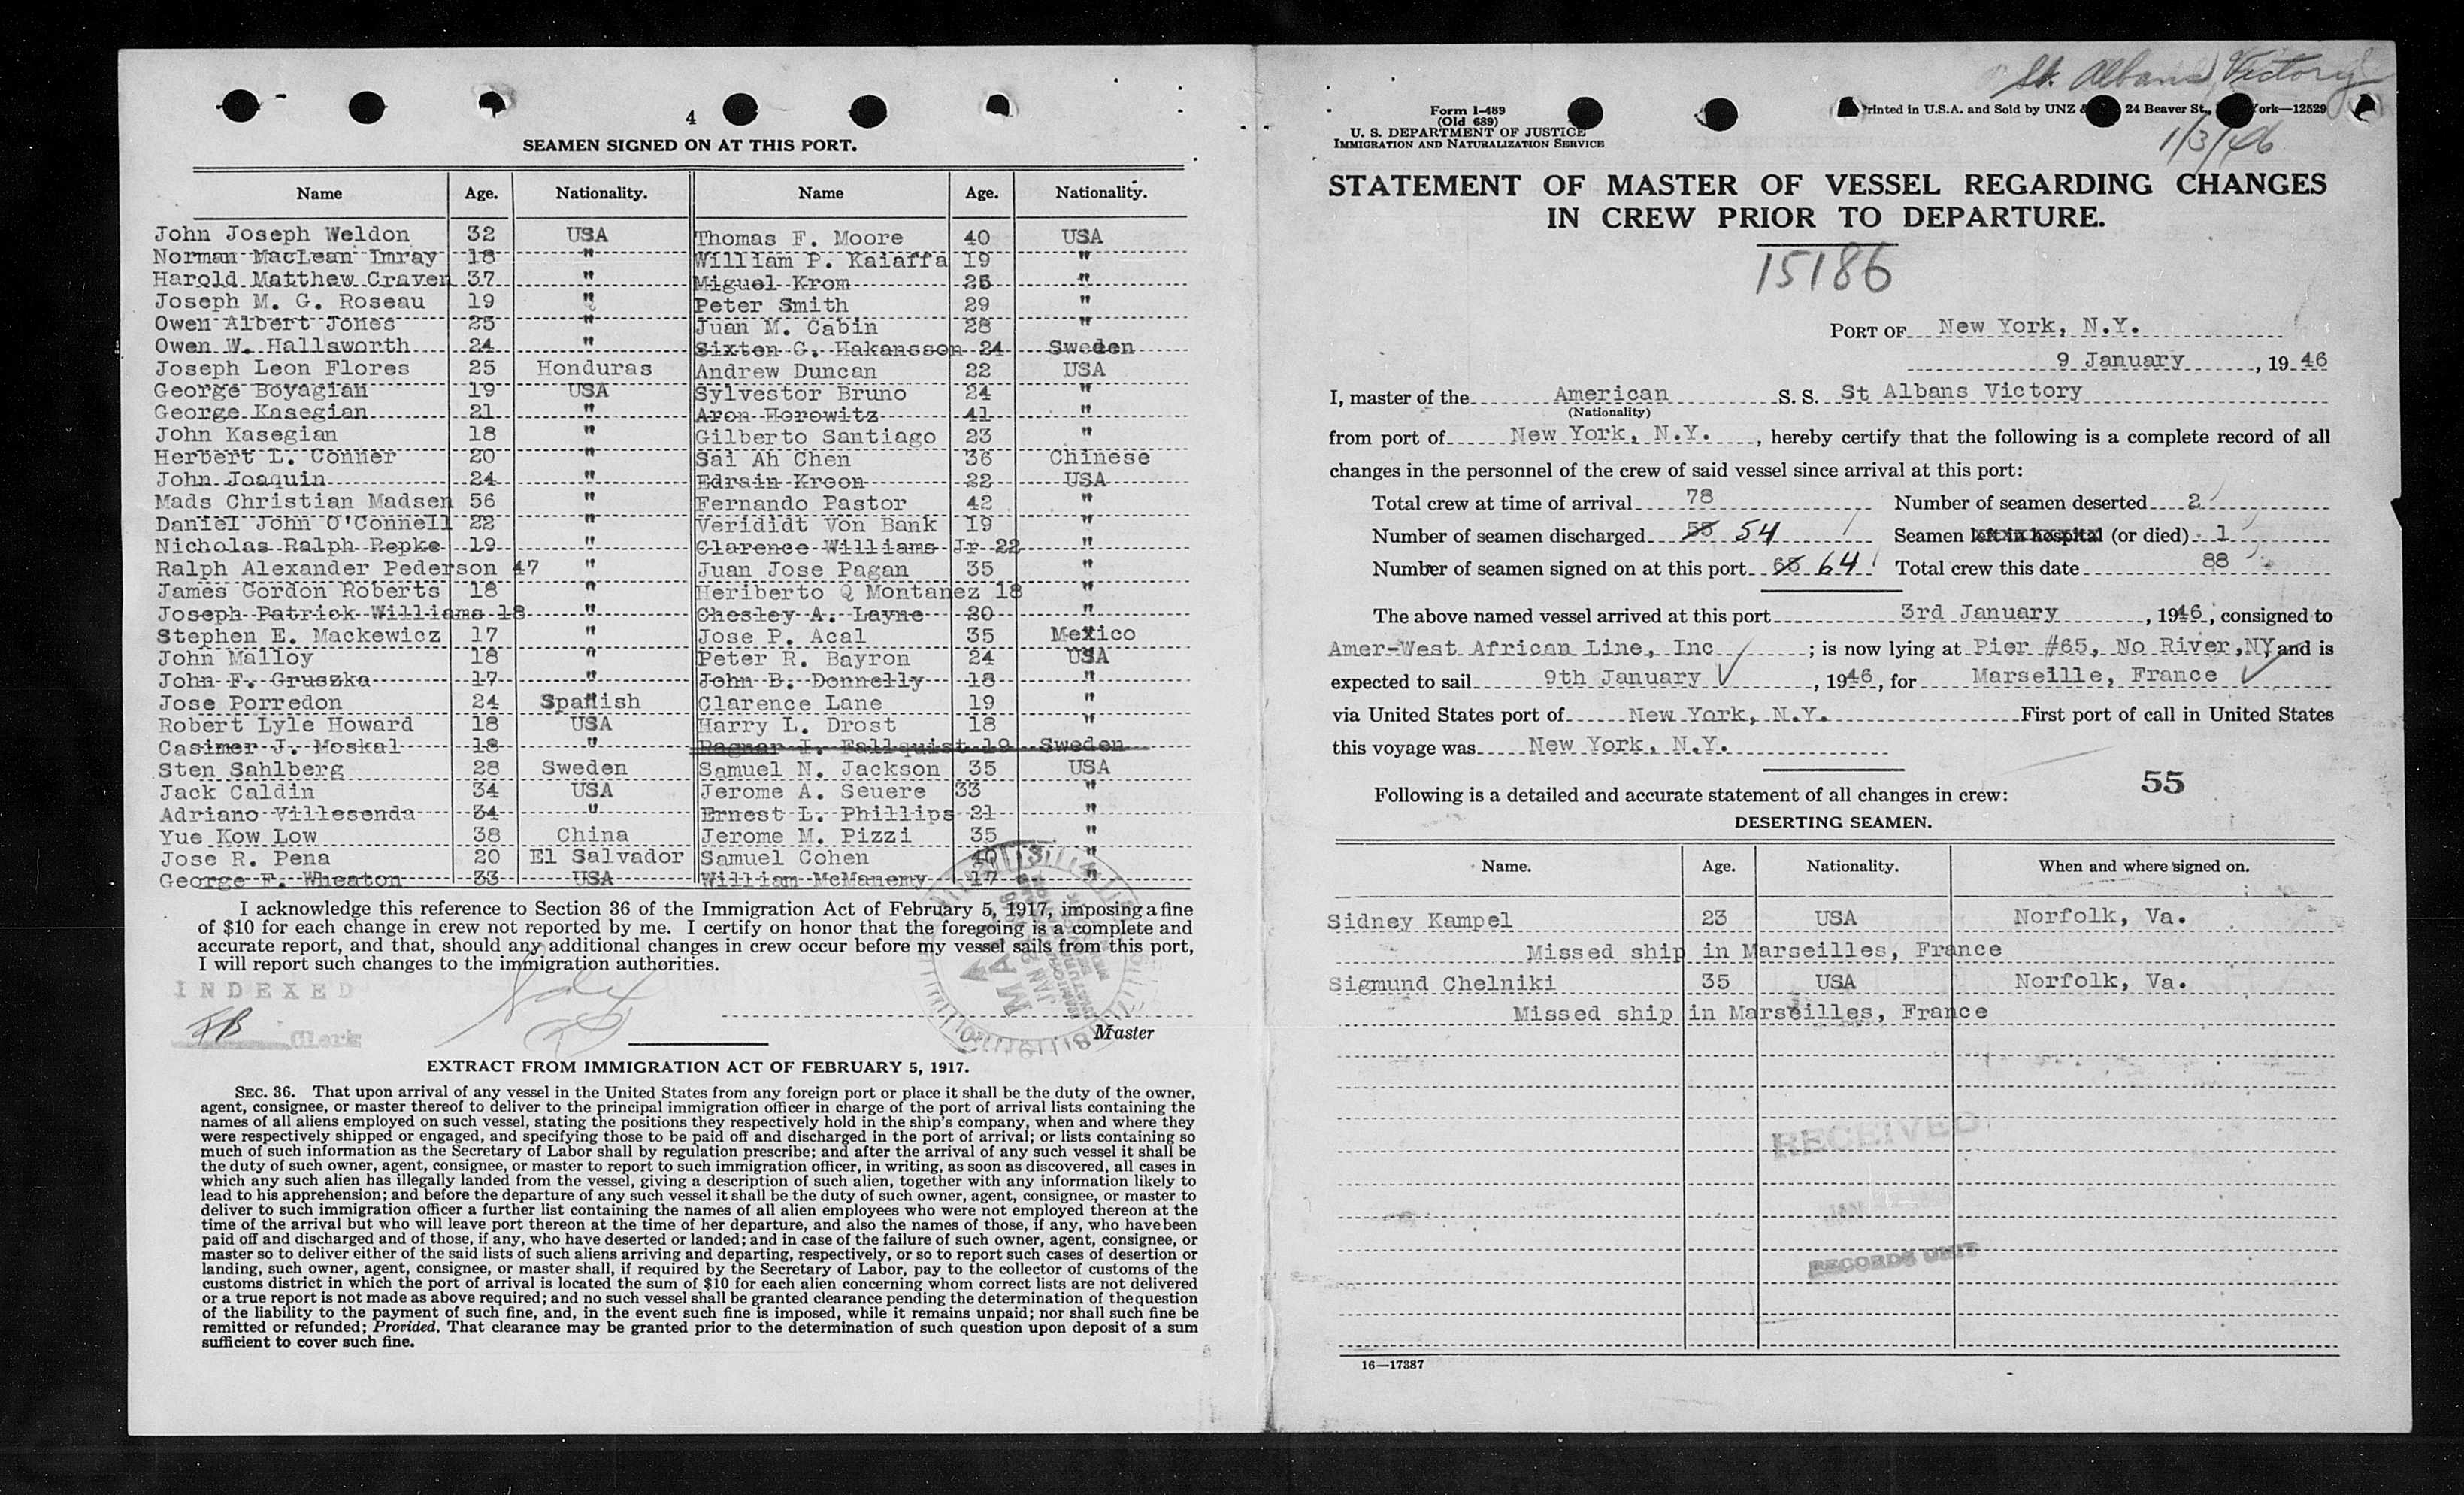 4
SEAMEN SIGNED ON AT THIS PORT.
Name Age. Nationality. Name Age. Nationality.
John Joseph Weldon 32 USA Thomas F. Moore 40 USA
Norman MacLean Imray 18 " William P. Kaiaffa 19 "
Harold Matthew Craven 37 " Miguel Krom 25 "
Joseph M. G. Roseau 19 " Peter Smith 29 "
Owen Albert Jones 25 " Juan M. Cabin 28 "
Owen W. Hallsworth 24 " Sixten G. Hakansson 24 Sweden
Joseph Leon Flores 25 Honduras Andrew Duncan 22 USA
George Boyagian 19 USA Sylvestor Bruno 24 "
George Kasegian 21 " Aron Horowitz 41 "
John Kasegian 18 " Gilberto Santiago 23 "
Herbert L. Conner 20 " Sai Ah Chen 36 Chinese
John Joaquin 24 " Edrain Kroon 22 USA
Mads Christian Madsen 56 " Fernando Pastor 42 "
Daniel John O'Connell 22 " Verididt Von Bank 19 "
Nicholas Ralph Repke 19 " Clarence Williams Jr 22 "
Ralph Alexander Pederson 47 " Juan Jose Pagan 35 "
James Gordon Roberts 18 " Heriberto Q Montanez 18 "
Joseph Patrick Williams 18 " Chesley A. Layne 20 "
Stephen E. Mackewicz 17 " Jose P. Acal 35 Mexico
John Malloy 18 " Peter R. Bayron 24 USA
John F. Gruszka 17 " John B. Donnelly 18 "
Jose Porredon 24 Spanish Clarence Lane 19 "
Robert Lyle Howard 18 USA Harry L. Drost 18 "
Casimer J. Moskal 18 " Ragnar I. Fallquist 19 Sweden
Sten Sahlberg 28 Sweden Samuel N. Jackson 35 USA
Jack Caldin 34 USA Jerome A. Seuere 33 "
Adriano Villesenda 34 " Ernest L. Phillips 21 "
Yue Kow Low 38 China Jerome M. Pizzi 35 "
Jose R. Pena 20 El Salvador Samuel Cohen 40 "
George F. Wheaton 33 USA William McManemy 17 "
I acknowledge this reference to Section 36 of the Immigration Act of February 5, 1917, imposing a fine
of $10 for each change in crew not reported by me. I certify on honor that the foregoing is a complete and
accurate report, and that, should any additional changes in crew occur before my vessel sails from this port,
I will report such changes to the immigration authorities.
INDEXED
Clerk
Master
EXTRACT FROM IMMIGRATION ACT OF FEBRUARY 5, 1917.
SEC. 36. That upon arrival of any vessel in the United States from any foreign port or place it shall be the duty of the owner,
agent, consignee, or master thereof to deliver to the principal immigration officer in charge of the port of arrival lists containing the
names of all aliens employed on such vessel, stating the positions they respectively hold in the ship's company, when and where they
were respectively shipped or engaged, and specifying those to be paid off and discharged in the port of arrival; or lists containing so
much of such information as the Secretary of Labor shall by regulation prescribe; and after the arrival of any such vessel it shall be
the duty of such owner, agent, consignee, or master to report to such immigration officer, in writing, as soon as discovered, all cases in
which any such alien has illegally landed from the vessel, giving a description of such alien, together with any information likely to
lead to his apprehension; and before the departure of any such vessel it shall be the duty of such owner, agent, consignee, or master to
deliver to such immigration officer a further list containing the names of all alien employees who were not employed thereon at the
time of the arrival but who will leave port thereon at the time of her departure, and also the names of those, if any, who have been
paid off and discharged and of those, if any, who have deserted or landed; and in case of the failure of such owner, agent, consignee, or
master so to deliver either of the said lists of such aliens arriving and departing, respectively, or so to report such cases of desertion or
landing, such owner, agent, consignee, or master shall, if required by the Secretary of Labor, pay to the collector of customs of the
customs district in which the port of arrival is located the sum of $10 for each alien concerning whom correct lists are not delivered
or a true report is not made as above required; and no such vessel shall be granted clearance pending the determination of the question
of the liability to the payment of such fine, and, in the event such fine is imposed, while it remains unpaid; nor shall such fine be
remitted or refunded; Provided, That clearance may be granted prior to the determination of such question upon deposit of a sum
sufficient to cover such fine.
St. Albans Victory
Form I-489
(Old 689)
U. S. DEPARTMENT OF JUSTICE
IMMIGRATION AND NATURALIZATION SERVICE
Printed in U.S.A. and Sold by UNZ & 24 Beaver St., York—12529
1/3/46
STATEMENT OF MASTER OF VESSEL REGARDING CHANGES
IN CREW PRIOR TO DEPARTURE.
15186
PORT OF New York, N.Y.
9 January, 1946
I, master of the American S. S. St Albans Victory
(Nationality)
from port of New York, N.Y., hereby certify that the following is a complete record of all
changes in the personnel of the crew of said vessel since arrival at this port:
Total crew at time of arrival 78 Number of seamen deserted 2
Number of seamen discharged 55 54 Seamen left in hospital (or died) 1
Number of seamen signed on at this port 65 64 Total crew this date 88
The above named vessel arrived at this port 3rd January, 1946, consigned to
Amer-West African Line, Inc; is now lying at Pier #65, No River,NY and is
expected to sail 9th January, 1946, for Marseille, France
via United States port of New York, N.Y. First port of call in United States
this voyage was New York, N.Y.
55
Following is a detailed and accurate statement of all changes in crew:
DESERTING SEAMEN.
Name. Age. Nationality. When and where signed on.
Sidney Kampel 23 USA Norfolk, Va.
Missed ship in Marseilles, France
Sigmund Chelniki 35 USA Norfolk, Va.
Missed ship in Marseilles, France
RECEIVED
RECORDS UNIT
16—17387